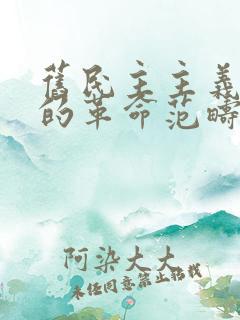 舊民主主義
的革命范疇
阿染大大
未经同意禁止搬我